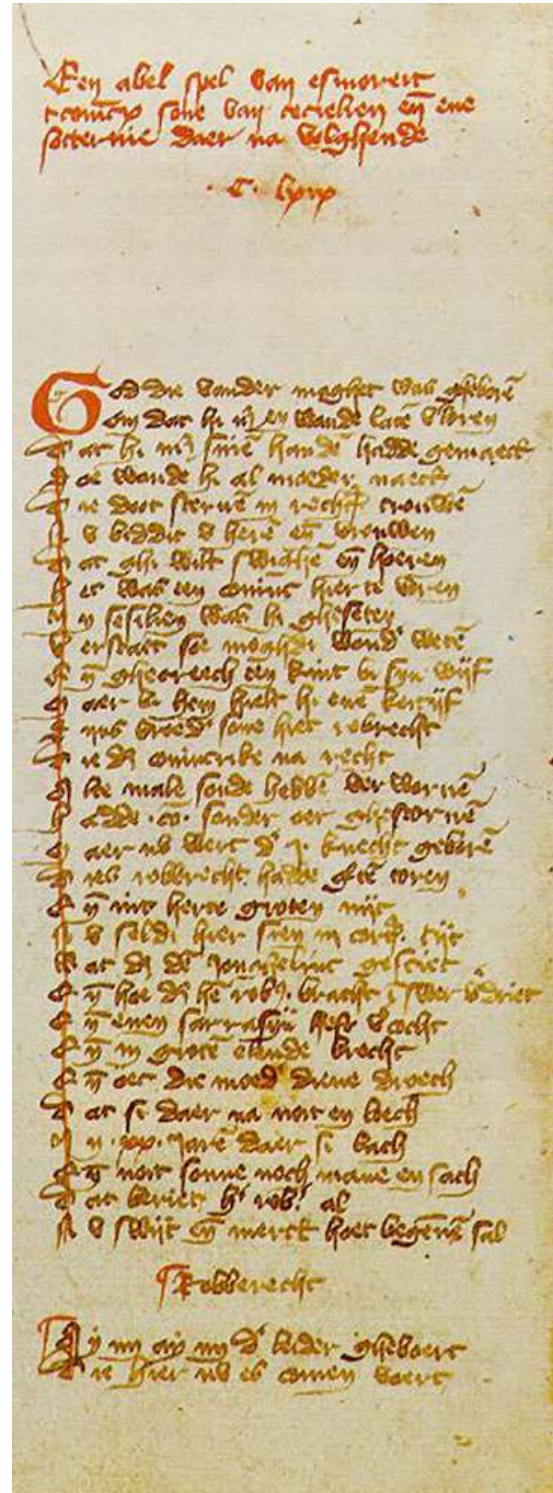 Een abel spel van esmoreit
tconincx sone van cecielien eñ ene
sotternie daer na volghende
. C . lxix
God die vander maghet was gheborē
Om dat hi niet en woude latē vloren
Dat hi met sinē handē hadde gemaect
Doe woude hi al moeder naect
Die doot stervē in rechter trouwē
Nv biddic v herē eñ vrouwen
Dat ghi wilt swighē eñ horen
Het was een coninc hier te voren
In sesilien was hi gheseten
Verstaet soe moghdi wondʳ wetē
Eñ ghecreech een kint bi sijn wijf
Maer bi hem hielt hi enē keitijf
Sijns broedʳ sone hiet robrecht
Die dʳ conincrike na recht
Alte male soude hebbē verworvē
Hadde .co. sonder oer ghestorvē
Maer nv wert dʳ .j. knecht geborē
Dies robbrecht hadde gʳtē toren
Eñ int herte groten nijt
Nv seldi hier sien in corter tijt
Wat dʳ dē jonghelinc gesciet
Eñ hoe dʳ hē rob. bracht ī swer vʳdriet
Eñ enen sarrasijn heft vcocht
Eñ in grotē elende brocht
Eñ oec die moedʳ diene droech
Dat si daer na noit en loech
In .xx. jarē daer si lach
Eñ noit sonne noch mane en sach
Dat beriet hʳ rob. al
Nv swijt eñ merct hoet beginnē sal
Robberecht
Ay my ay my dʳ leider gheboert
Die hier nv es comen voert